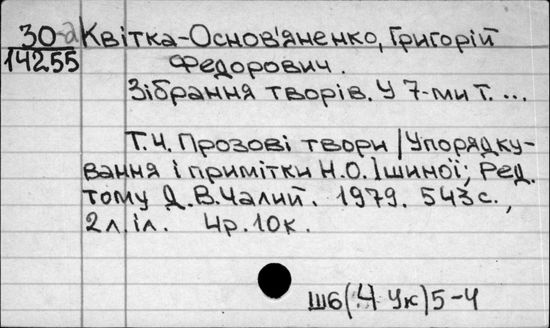 30-а Квітка-Основ'яненко, Григорій
14255 Федорович.
Зібрання творів. У 7-ми т. ...
Т.4. Прозові твори / Упорядку-
вання і примітки Н.О. Ішиної; Ред.
тому Д.В. Чалий. 1979. 543 с.,
2 л. іл. 4р. 10к.
Ш6(4Ук)5-4